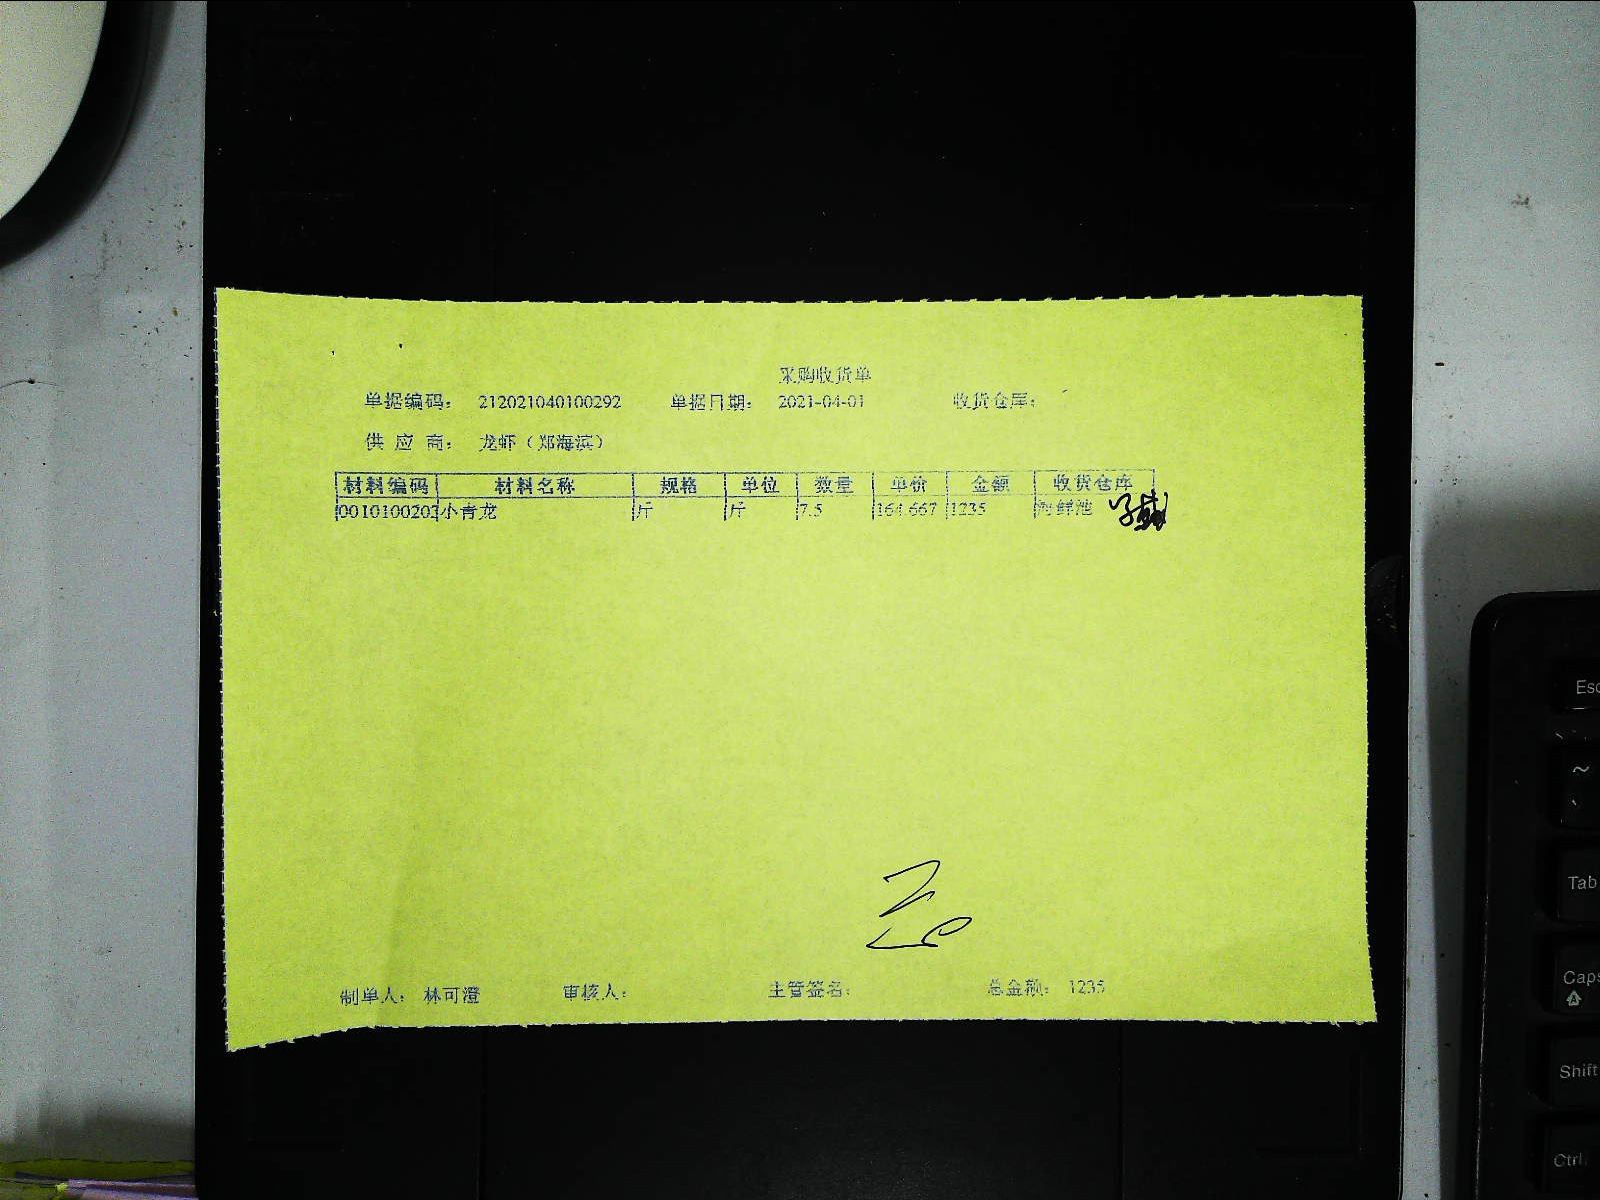 采购收货单
单据编码： 212021040100292 单据日期： 2021-04-01 收货仓库：
供 应 商： 龙虾（郑海滨）
材料编码 材料名称 规格 单位 数量 单价 金额 收货仓库
0010100202 小青龙 斤 斤 7.5 164.667 1235 海鲜池
制单人： 林可澄 审核人： 主管签名： 总金额： 1235
Esc
~
Tab
Caps
Shift
Ctrl